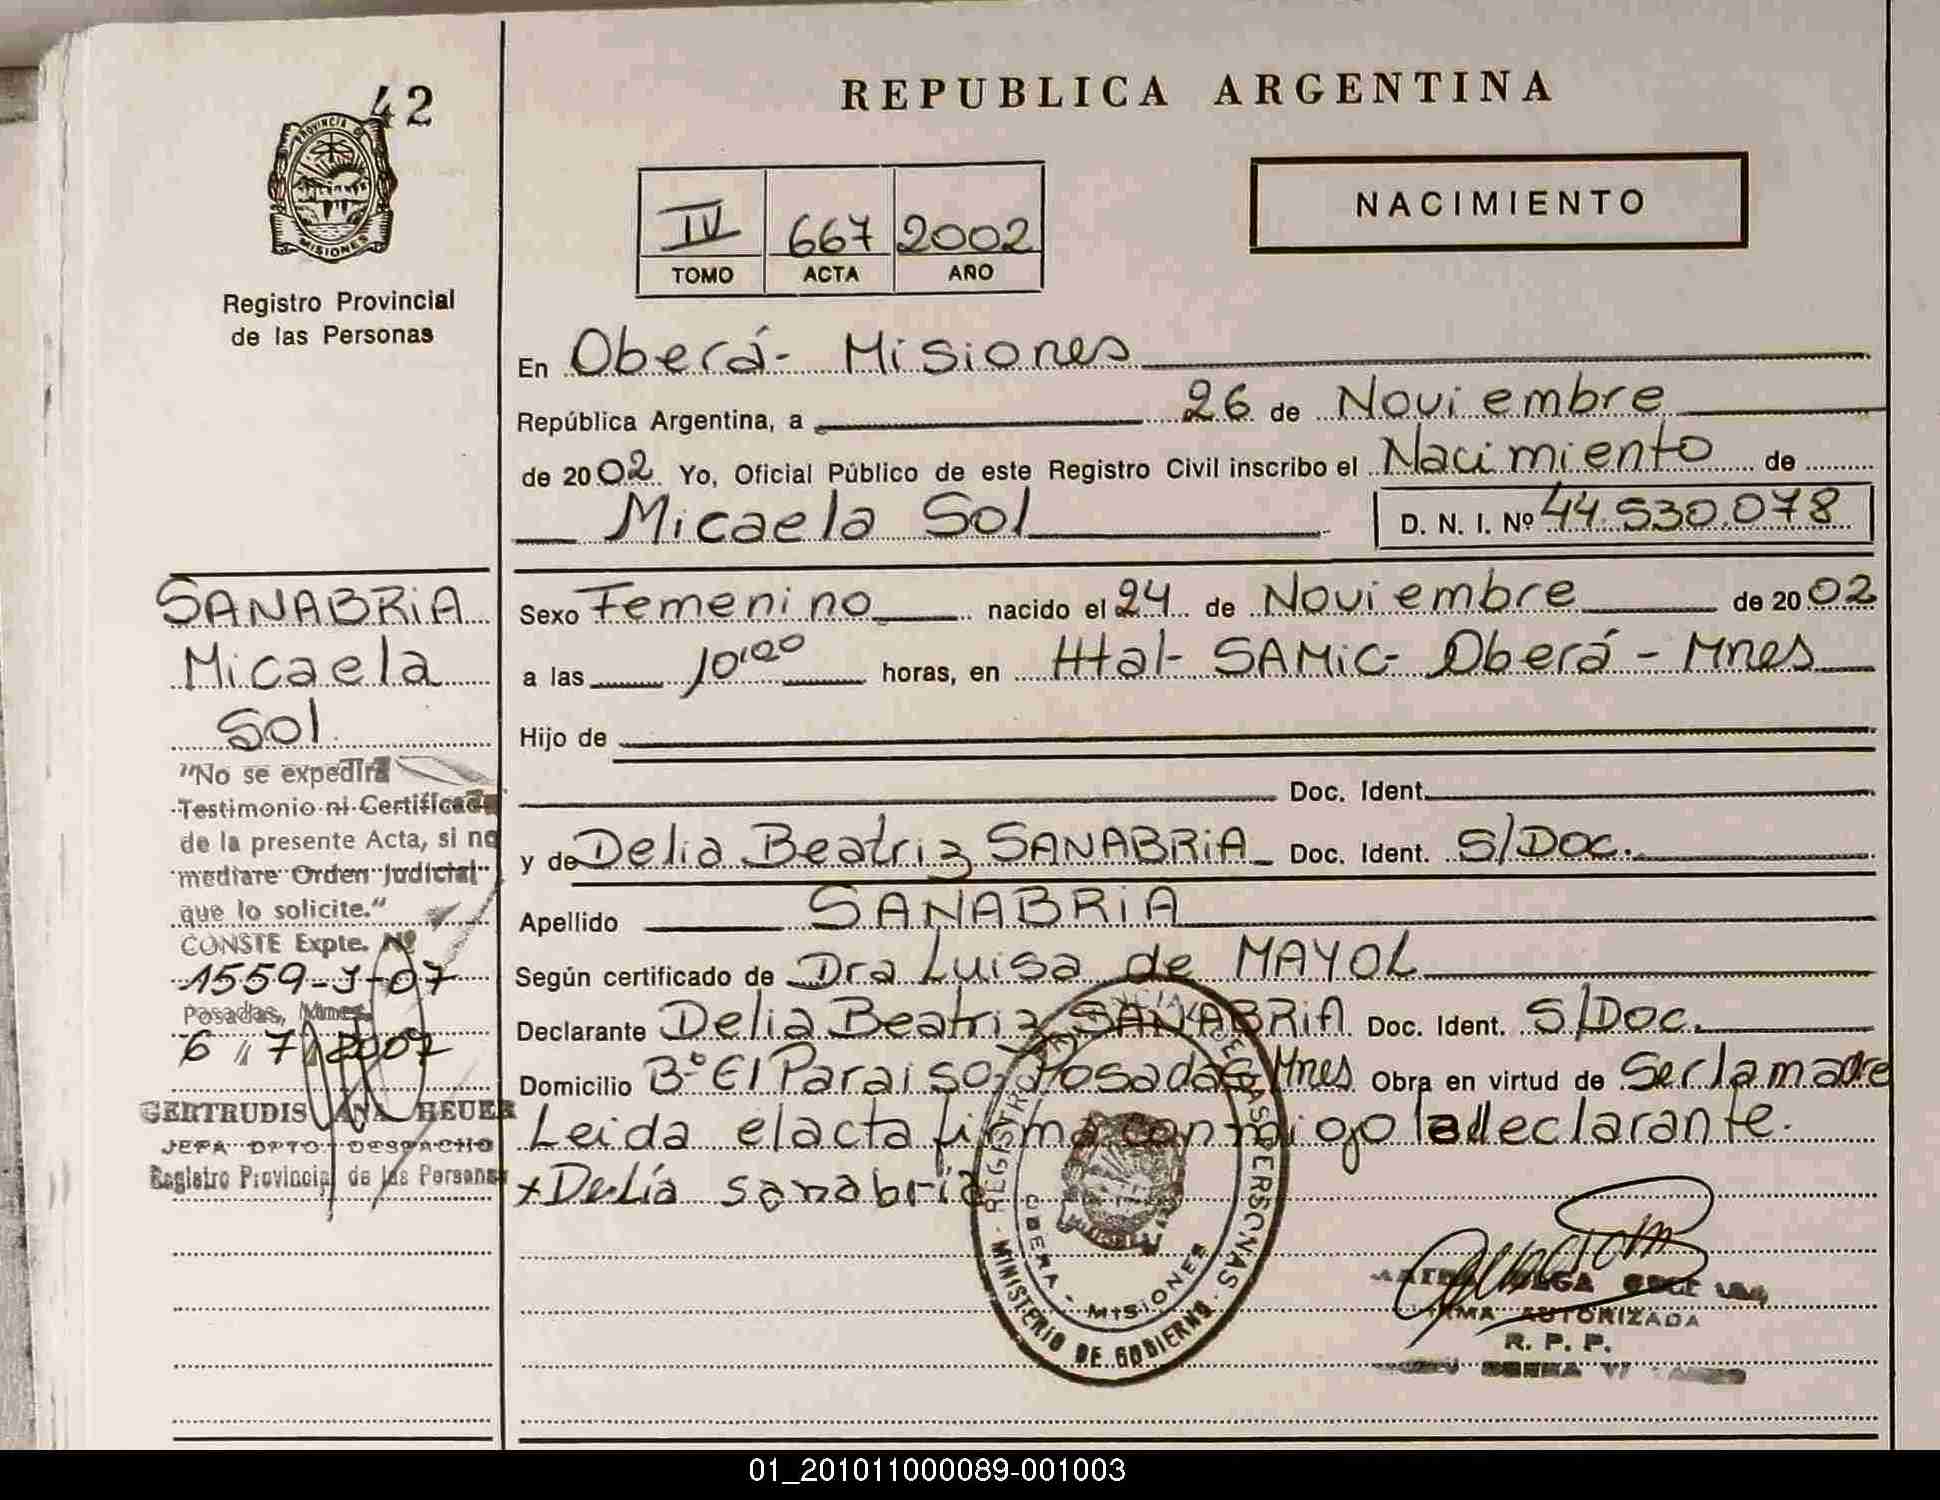 42
PROVINCIA DE
MISIONES
Registro Provincial
de las Personas
REPUBLICA ARGENTINA
IV 667 2002
TOMO ACTA AÑO
NACIMIENTO
En Oberá- Misiones
República Argentina, a 26 de Noviembre
de 2002 Yo, Oficial Público de este Registro Civil inscribo el Nacimiento de
Micaela Sol D. N. I. Nº 44.530.078
Sexo Femenino nacido el 24 de Noviembre de 2002
a las 10'00 horas, en Htal- SAMiC- Oberá - Mnes
Hijo de
Doc. Ident.
y de Delia Beatriz SANABRiA Doc. Ident. S/Doc.
Apellido SANABRiA
Según certificado de Dra Luisa de MAYOL
Declarante Delia Beatriz SANABRiA Doc. Ident. S/Doc.
Domicilio Bº El Paraiso, Posadas Mnes Obra en virtud de Ser la madre
Leida el acta firma conmigo la declarante.
x Delía sanabria
SANABRiA
Micaela
Sol
"No se expedirá
Testimonio ni Certificado
de la presente Acta, si no
mediare Orden Judicial
que lo solicite."
CONSTE Expte. Nº
1559-J-07
Posadas, Mnes.
6 // 7 // 2007
GERTRUDIS ANA HEUER
JEFA DPTO DESPACHO
Registro Provincial de las Personas
OBERA - MISIONES
MINISTERIO DE GOBIERNO
OLGA
FIRMA AUTORIZADA
R. P. P.
01_201011000089-001003